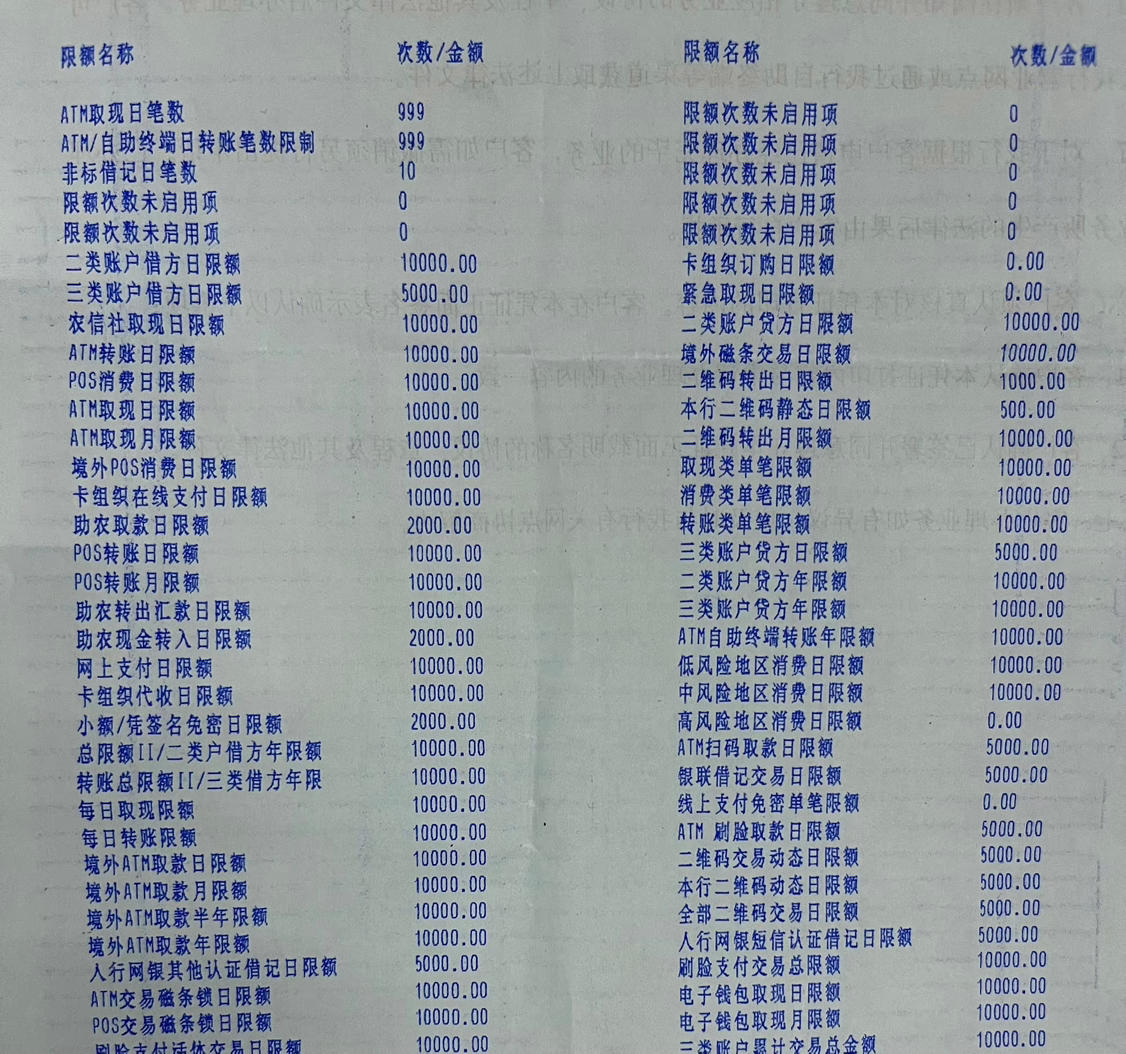 限额名称 次数/金额 限额名称 次数/金额
ATM取现日笔数 999 限额次数未启用项 0
ATM/自助终端日转账笔数限制 999 限额次数未启用项 0
非标借记日笔数 10 限额次数未启用项 0
限额次数未启用项 0 限额次数未启用项 0
限额次数未启用项 0 限额次数未启用项 0
二类账户借方日限额 10000.00 卡组织订购日限额 0.00
三类账户借方日限额 5000.00 紧急取现日限额 0.00
农信社取现日限额 10000.00 二类账户贷方日限额 10000.00
ATM转账日限额 10000.00 境外磁条交易日限额 10000.00
POS消费日限额 10000.00 二维码转出日限额 1000.00
ATM取现日限额 10000.00 本行二维码静态日限额 500.00
ATM取现月限额 10000.00 二维码转出月限额 10000.00
境外POS消费日限额 10000.00 取现类单笔限额 10000.00
卡组织在线支付日限额 10000.00 消费类单笔限额 10000.00
助农取款日限额 2000.00 转账类单笔限额 10000.00
POS转账日限额 10000.00 三类账户贷方日限额 5000.00
POS转账月限额 10000.00 二类账户贷方年限额 10000.00
助农转出汇款日限额 10000.00 三类账户贷方年限额 10000.00
助农现金转入日限额 2000.00 ATM自助终端转账年限额 10000.00
网上支付日限额 10000.00 低风险地区消费日限额 10000.00
卡组织代收日限额 10000.00 中风险地区消费日限额 10000.00
小额/凭签名免密日限额 2000.00 高风险地区消费日限额 0.00
总限额II/二类户借方年限额 10000.00 ATM扫码取款日限额 5000.00
转账总限额II/三类借方年限 10000.00 银联借记交易日限额 5000.00
每日取现限额 10000.00 线上支付免密单笔限额 0.00
每日转账限额 10000.00 ATM 刷脸取款日限额 5000.00
境外ATM取款日限额 10000.00 二维码交易动态日限额 5000.00
境外ATM取款月限额 10000.00 本行二维码动态日限额 5000.00
境外ATM取款半年限额 10000.00 全部二维码交易日限额 5000.00
境外ATM取款年限额 10000.00 人行网银短信认证借记日限额 5000.00
人行网银其他认证借记日限额 5000.00 刷脸支付交易总限额 10000.00
ATM交易磁条锁日限额 10000.00 电子钱包取现日限额 10000.00
POS交易磁条锁日限额 10000.00 电子钱包取现月限额 10000.00
刷脸支付活体交易日限额 10000.00 三类账户累计交易总金额 10000.00